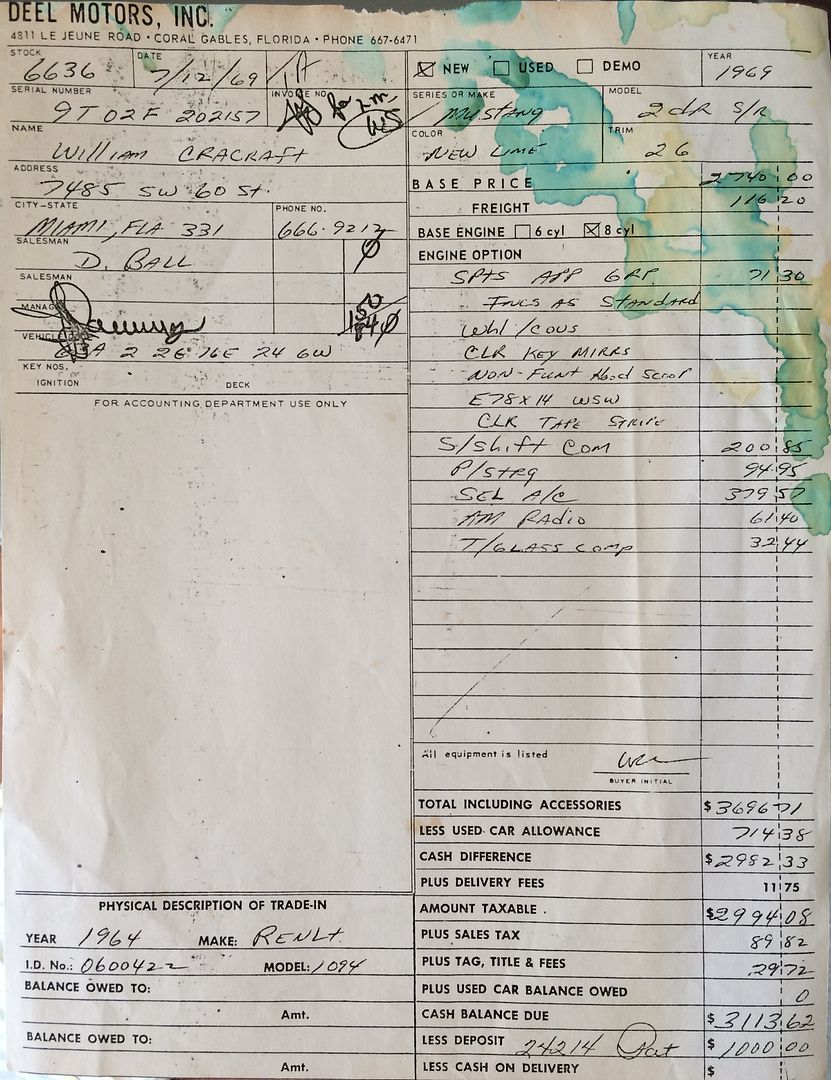 DEEL MOTORS, INC.
4811 LE JEUNE ROAD • CORAL GABLES, FLORIDA • PHONE 667-6471
STOCK 6636 DATE 7/12/69
SERIAL NUMBER 9T02F 202157 INVOICE NO.
NAME William CRACRAFT
ADDRESS 7485 SW 60 St.
CITY-STATE MIAMI, FLA 331 PHONE NO. 666-9212
SALESMAN D. BALL
SALESMAN
MANAGER
VEHICLE 65A 2 26 76E 24 6W
KEY NOS.
IGNITION DECK
FOR ACCOUNTING DEPARTMENT USE ONLY
PHYSICAL DESCRIPTION OF TRADE-IN
YEAR 1964 MAKE: RENLT
I.D. No.: 0600422 MODEL: 1094
BALANCE OWED TO:
Amt.
BALANCE OWED TO:
Amt.
NEW USED DEMO YEAR 1969
SERIES OR MAKE MUSTANG MODEL 2 dR S/R
COLOR NEW LIME TRIM 26
BASE PRICE 2740 00
FREIGHT 116 20
BASE ENGINE 6 cyl 8 cyl
ENGINE OPTION
SPTS APP GRP. 71 30
INCS AS STANDARD
Whl/COVS
CLR KEY MIRRS
NON-FUNT Hood SCOOP
E78x14 WSW
CLR TAPE STRIPE
S/Shift COM 200 85
P/STRG 94.95
SEL A/C 379 57
AM RADIO 61.40
T/GLASS COMP 32.44
All equipment is listed
BUYER INITIAL
TOTAL INCLUDING ACCESSORIES $ 3696 71
LESS USED CAR ALLOWANCE 714 38
CASH DIFFERENCE $ 2982 33
PLUS DELIVERY FEES 11 75
AMOUNT TAXABLE . $ 2994 08
PLUS SALES TAX 89 82
PLUS TAG, TITLE & FEES 29 72
PLUS USED CAR BALANCE OWED 0
CASH BALANCE DUE $ 3113 62
LESS DEPOSIT 24214 $ 1000 00
LESS CASH ON DELIVERY $